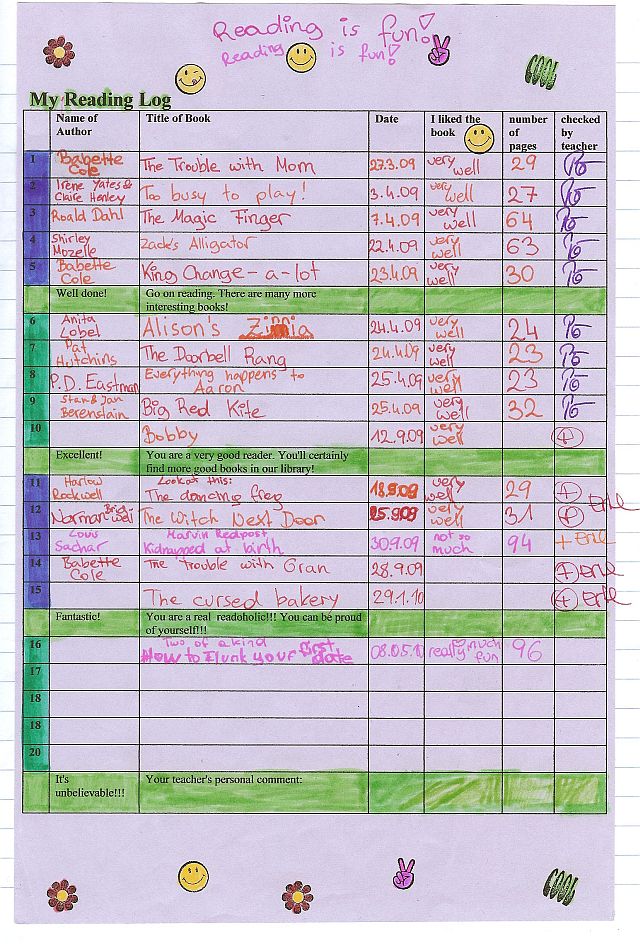 Reading is fun!
Reading is fun!
COOL
My Reading Log
Name of Author Title of Book Date I liked the book number of pages checked by teacher
1 Babette Cole The Trouble with Mom 27.3.09 very well 29
2 Irene Yates & Claire Henley Too busy to play! 3.4.09 very well 27
3 Roald Dahl The Magic Finger 7.4.09 very well 64
4 Shirley Mozelle Zack's Alligator 22.4.09 very well 63
5 Babette Cole King Change-a-lot 23.4.09 very well 30
Well done! Go on reading. There are many more interesting books!
6 Anita Lobel Alison's Zinnia 24.4.09 very well 24
7 Pat Hutchins The Doorbell Rang 24.4.09 very well 23
8 P.D. Eastman Everything happens to Aaron 25.4.09 very well 23
9 Stan & Jan Berenstain Big Red Kite 25.4.09 very well 32
10 Bobby 12.9.09 very well +
Excellent! You are a very good reader. You'll certainly find more good books in our library!
11 Harlow Rockwell Look at this: The dancing frog 18.9.09 very well 29 +
12 Norman Bridwell The Witch Next Door 25.9.09 very well 31 +
13 Louis Sachar Marvin Redpost Kidnapped at birth 30.9.09 not so much 94 +
14 Babette Cole The trouble with Gran 28.9.09 +
15 The cursed bakery 29.1.10 +
Fantastic! You are a real readoholic!!! You can be proud of yourself!!!
16 Two of a kind How to Flunk your first date 08.05.10 really much fun 96
17
18
18
20
It's unbelievable!!! Your teacher's personal comment:
COOL